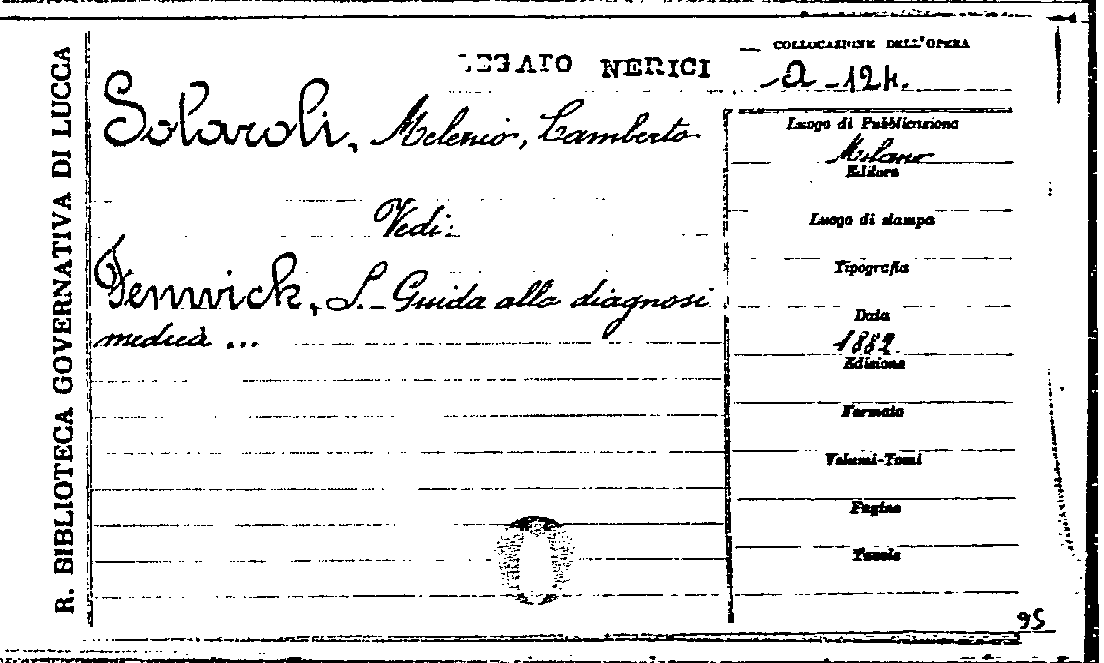 R. BIBLIOTECA GOVERNATIVA DI LUCCA
LEGATO NERICI
COLLOCAZIONE DELL'OPERA
-a-124.
Solaroli, Melenio, Lamberto
Vedi:
Fenwick, S. - Guida alla diagnosi
medica ...
Luogo di Pubblicazione
Milano
Editore
Luogo di stampa
Tipografia
Data
1882
Edizione
Formato
Volumi-Tomi
Pagine
Tavole
95